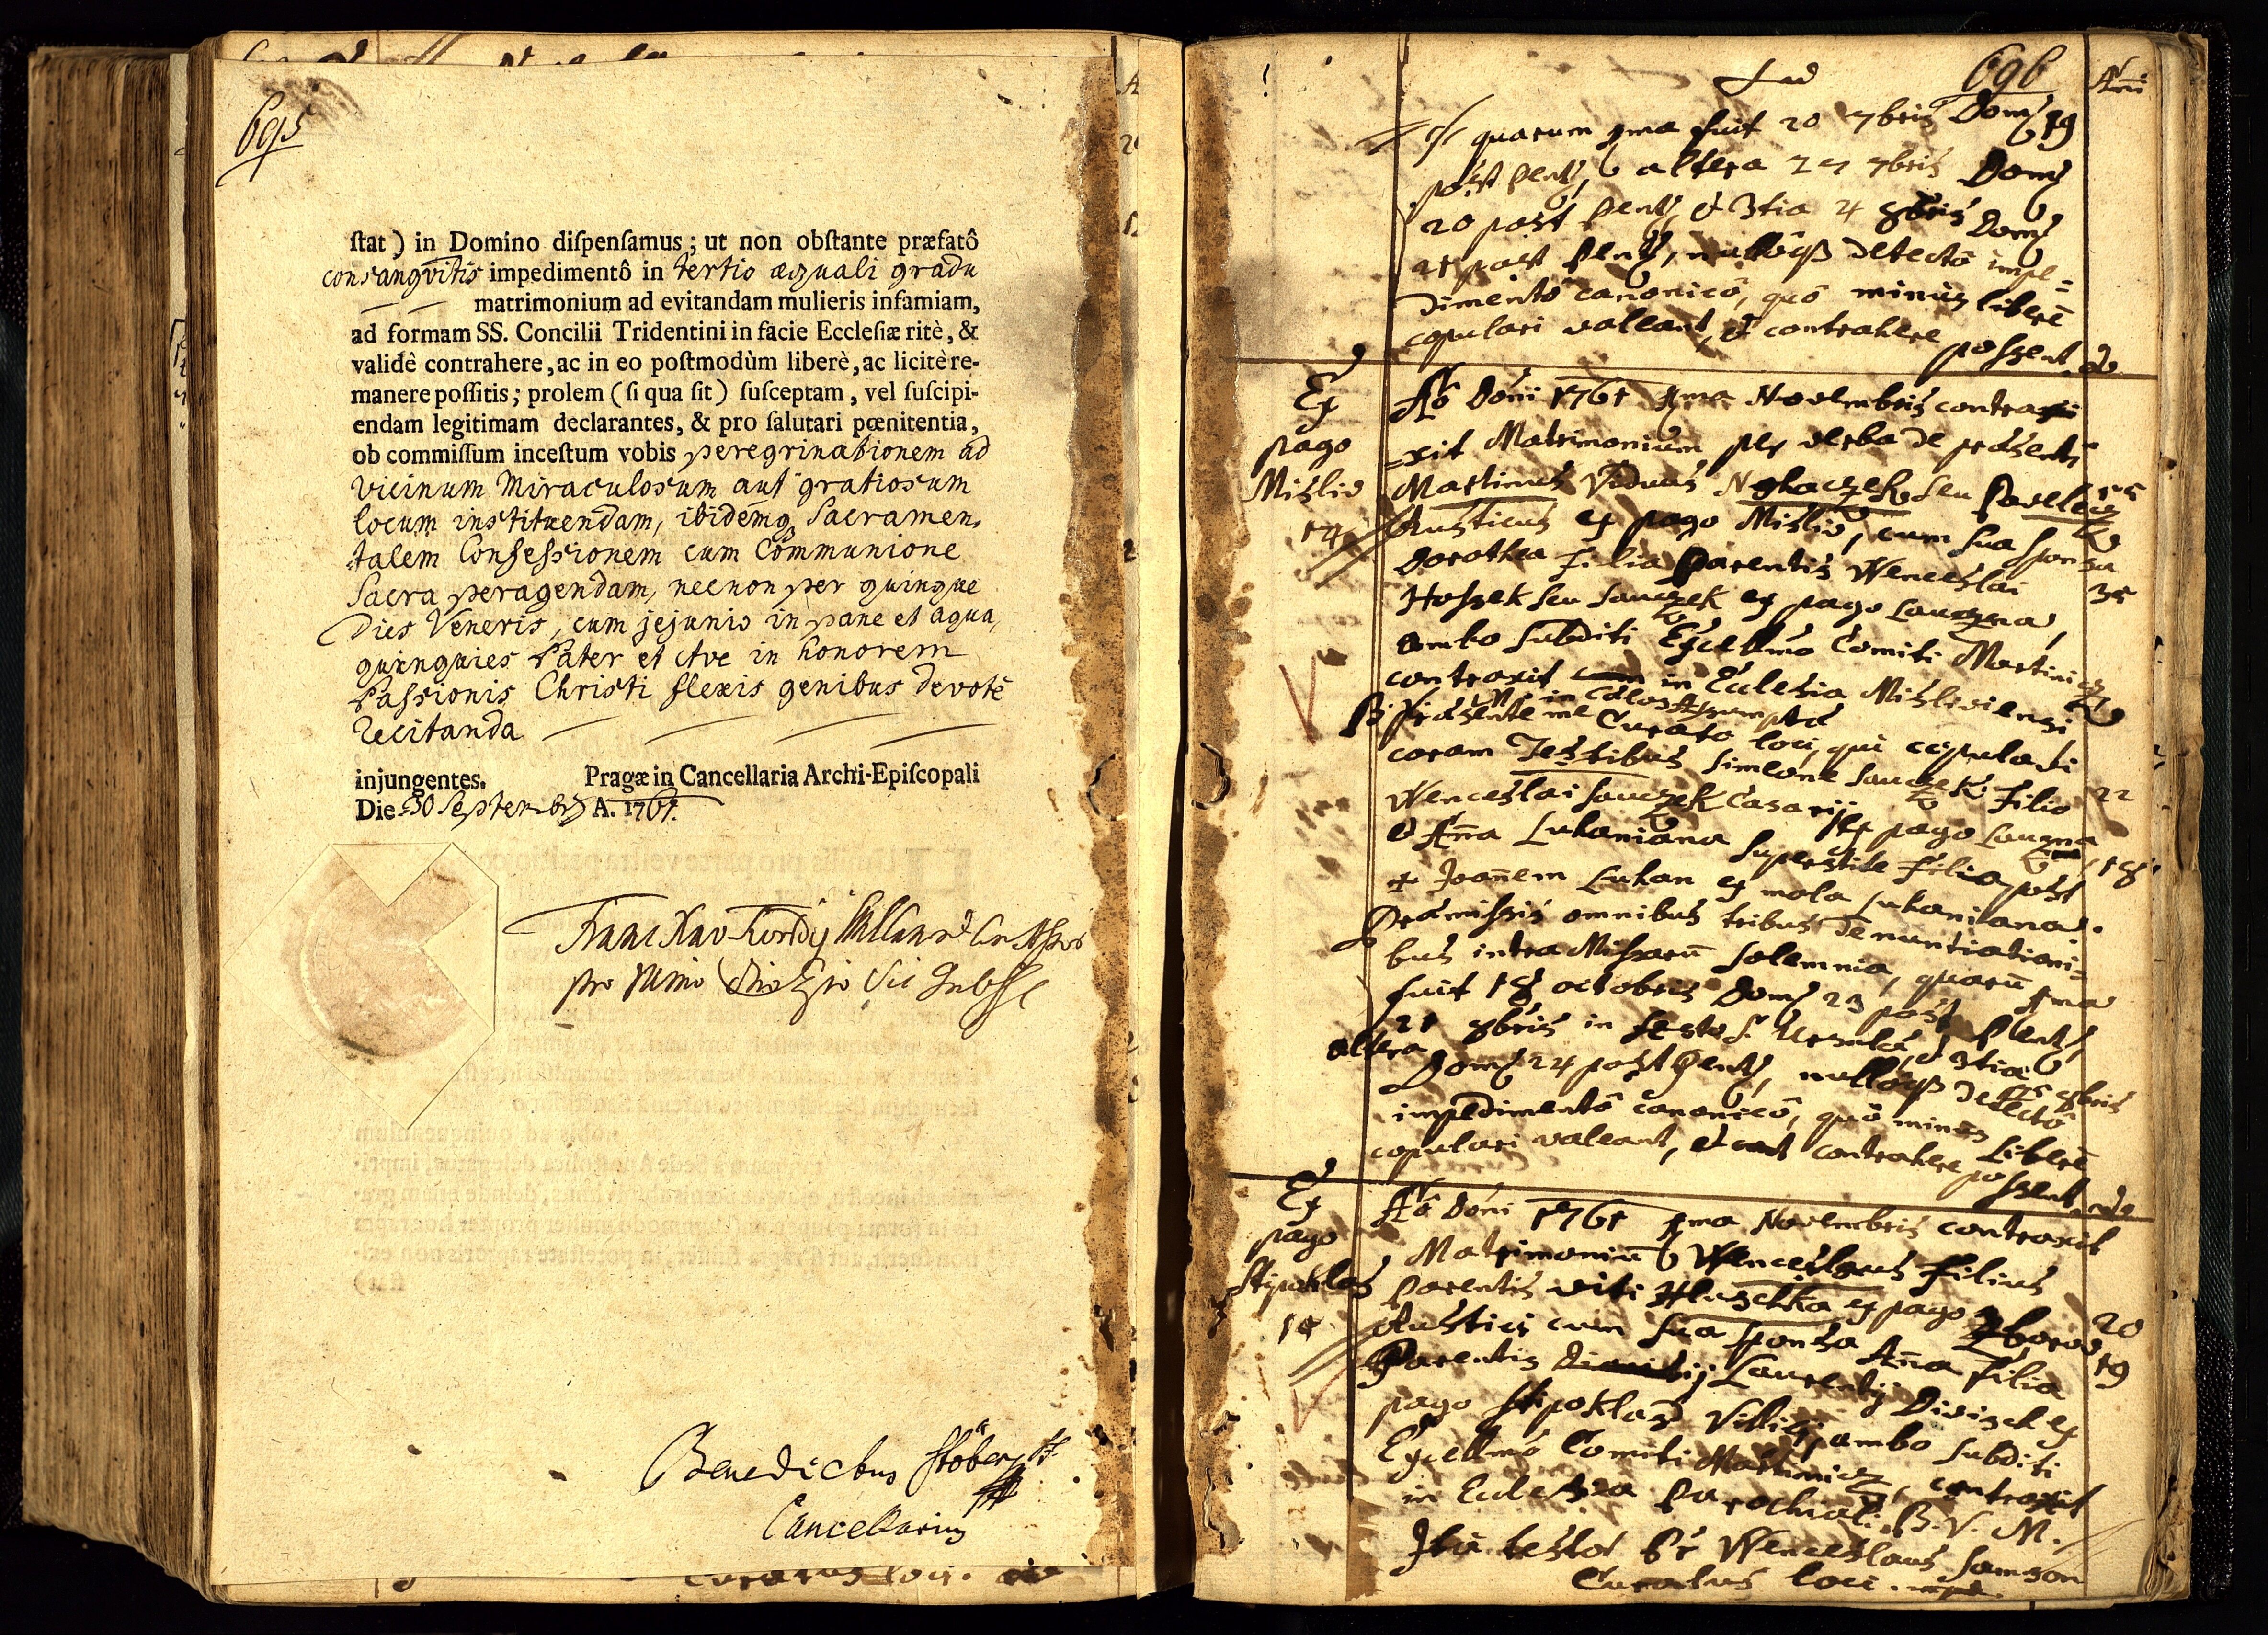 695
stat) in Domino dispensamus; ut non obstante præfatô
consangvitis impedimentô in tertio æquali gradu
matrimonium ad evitandam mulieris infamiam,
ad formam SS. Concilii Tridentini in facie Ecclesiæ ritè, &
validè contrahere, ac in eo postmodùm liberè, ac licitè re-
manere possitis; prolem (si qua sit) susceptam, vel suscipi-
endam legitimam declarantes, & pro salutari pœnitentia,
ob commissum incestum vobis peregrinationem ad
vicinum Miraculosum aut gratiosum
locum instituendam, ibidemq Sacramen,
talem Confessionem cum Communione
Sacra peragendam, necnon per quinque
Dies Veneris, cum jejunio in pane et aqua,
quinquies Pater et Ave in honorem
Passionis Christi flexis genibus devotè
recitanda
injungentes. Pragæ in Cancellaria Archi-Episcopali
Die 30 Septembris A. 1761.
Benedictus Stöber
Cancellarius
696
Añi
quarum 1ma fuit 20 7bris Dom 19
post Pent, altera 27 7bris Dom
20 post Pent, & 3tia 4 8bris Dom
21 post Pent, nullôqß detectô impe=
dimentô canonicô, quô minus liberê
copulari valeant, & contrahere possent.
Ex
pago
Mislio
14
Aô Dôni 1761 1ma Novembris contra
=xit Matrimonium per verba de præsenti
Martinus Viduus seu 55
Rusticus ex pago Mislio, cum sua sponsa
Dorothea filia Parentis Wenceslai 35
Hoszek seu Sauczek ex pago Lauczna,
ambo subditi Excellmo Comiti Martinicz
contraxit in Ecclesia Misliviensi
in Cælos Assumptæ
Præsente me Curato loci, qui copulavi
coram Testibus Simeone Sauczek filio 22
Wenceslai Sauczek Casarij ex pago Lauczna
& Aña Lukaniana superstite filia post 18
+ Joañem Lukan ex mola Lukaniana.
Præmissis omnibus tribus denuntiationi=
bus intra Missarũ solemnia, quarũ 1ma
fuit 18 octobris Dom 23 post Pent,
altera 21 8bris in festo S. Ursulæ, & 3tia
25 8bris
Dom 24 post Pent, nullôqß detectô
impedimentô canonicô, quô minus Liberê
copulari valeant, & contrahere possent.
Ex
pago
Stipoklas
15
Aô Dôni 1761 1ma Novembris contraxit
Matrimoniũ Wenceslaus filius
Parentis Viti Hluschka ex pago Zborow 20
Rustici cum sua sponsa Aña filia 19
Parentis Laurentij Divisch ex
pago Stipoklas ambo subditi
Excellmo Comiti Martinicz, contraxit
in Ecclesia Parochiali B. V. M.
Ita testor Pr Wenceslaus Samson
Curatus loci.